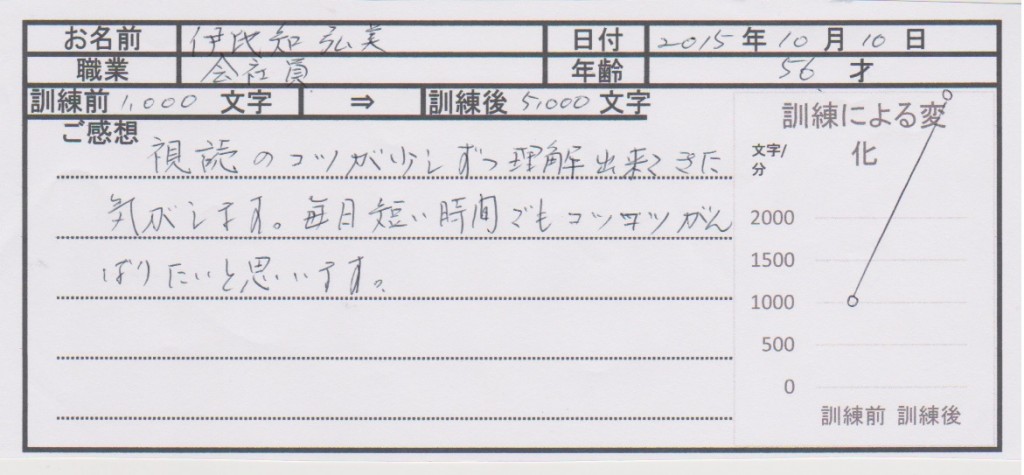 お名前 伊比知弘美 日付 2015年10月10日
職業 会社員 年齢 56才
訓練前 1,000 文字 ⇒ 訓練後 5,000 文字
ご感想
視読のコツが少しずつ理解出来てきた
気がします。毎日短い時間でもコツコツがん
ばりたいと思います。
訓練による変
化
文字/
分
2000
1500
1000
500
0
訓練前 訓練後